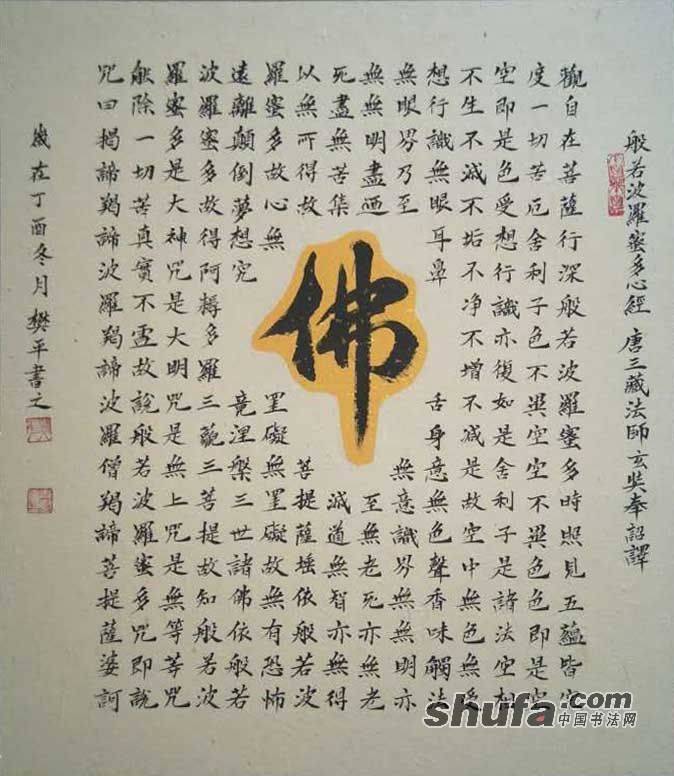 般若波羅蜜多心經 唐三藏法師玄奘奉詔譯
觀自在菩薩行深般若波羅蜜多時照見五蘊皆空
度一切苦厄舍利子色不異空空不異色色即是空
空即是色受想行識亦復如是舍利子是諸法空相
不生不滅不垢不净不增不減是故空中無色無受
想行識無眼耳鼻 舌身意無色聲香味觸法
無眼界乃至 無意識界無無明亦
無無明盡迺 至無老死亦無老
死盡無苦集 滅道無智亦無得
以無所得故 菩提薩埵依般若波
羅蜜多故心無 罣礙無罣礙故無有恐怖
遠離顛倒夢想究 竟涅槃三世諸佛依般若
波羅蜜多故得阿耨多羅三藐三菩提故知般若波
羅蜜多是大神咒是大明咒是無上咒是無等等咒
能除一切苦真實不虛故說般若波羅蜜多咒即說
咒曰揭諦羯諦波羅羯諦波羅僧羯諦菩提薩婆訶
佛
歲在丁酉冬月樊平書之
shufa.com
中国书法网